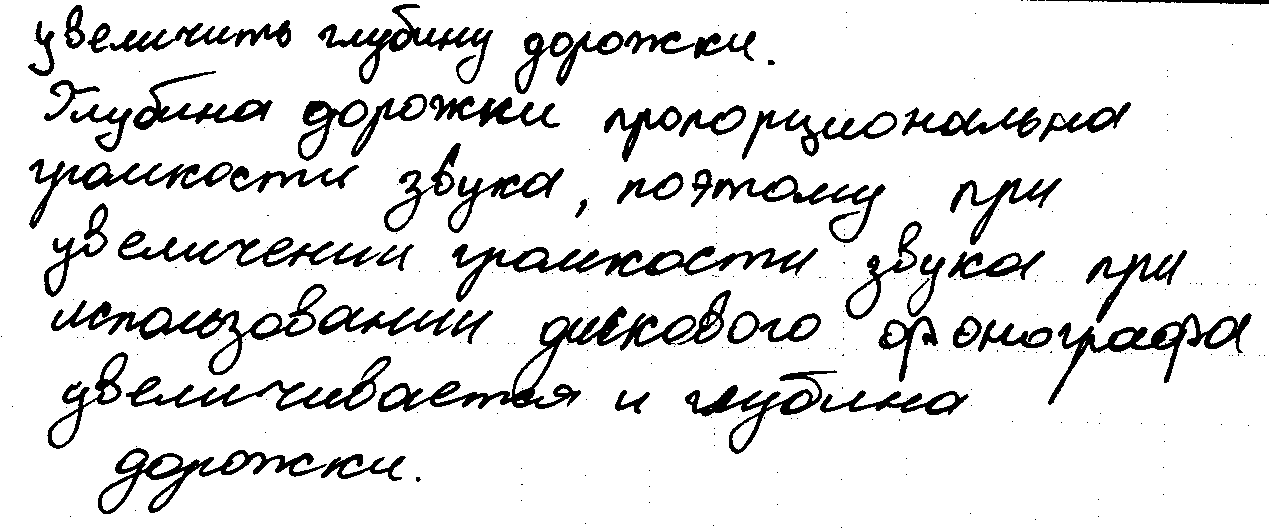 увеличить глубину дорожки.
Глубина дорожки пропорциональна
громкости звука, поэтому при
увеличении громкости звука при
использовании дискового фонографа
увеличивается и глубина
дорожки.